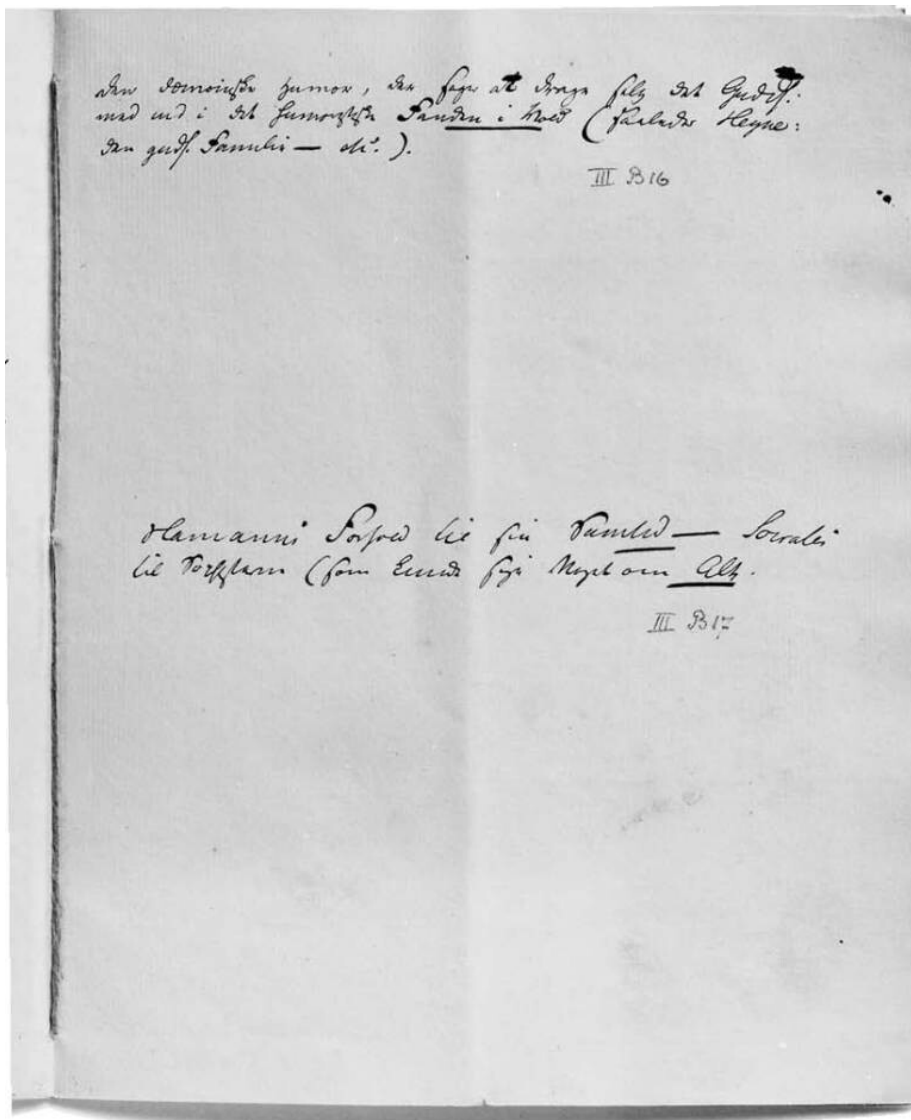 den dæmoniske Humor, der søger at drage selv det Gudd.:
med ind i det humoristiske Fanden i Vold (saaledes Heyne:
den gudd. Familie — etc.).
III B16
Hamanns Forhold til sin Samtid — Socrates
til Sophisterne (som kunde sige Noget om Alt.
III B17